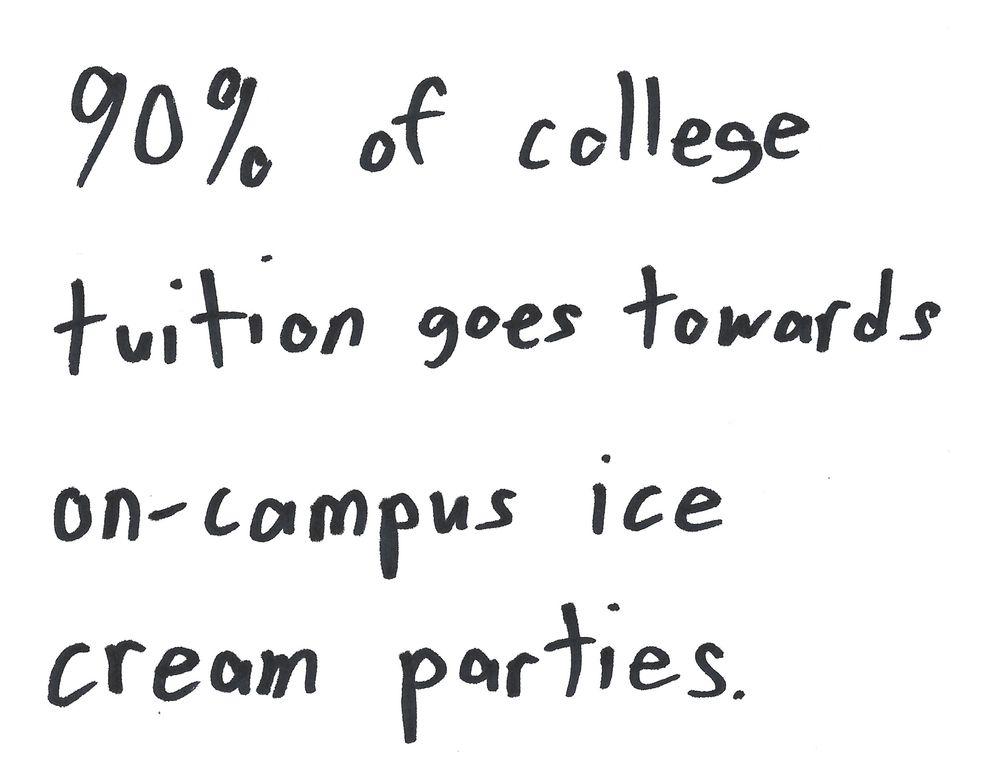 90% of college
tuition goes towards
on-campus ice
cream parties.